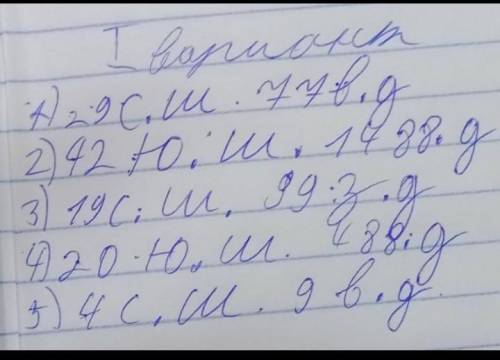 I вариант
1) 29 с. ш. 77 в. д
2) 42 ю. ш. 148 в. д
3) 19 с. ш. 99 з. д
4) 20 ю. ш. 48 в. д
5) 4 с. ш. 9 в. д.